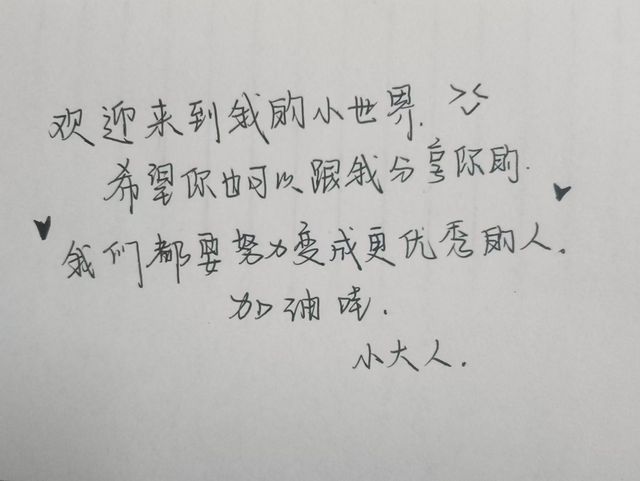 欢迎来到我的小世界.
希望你也可以跟我分享你的.
我们都要努力变成更优秀的人.
加油哇.
小大人.